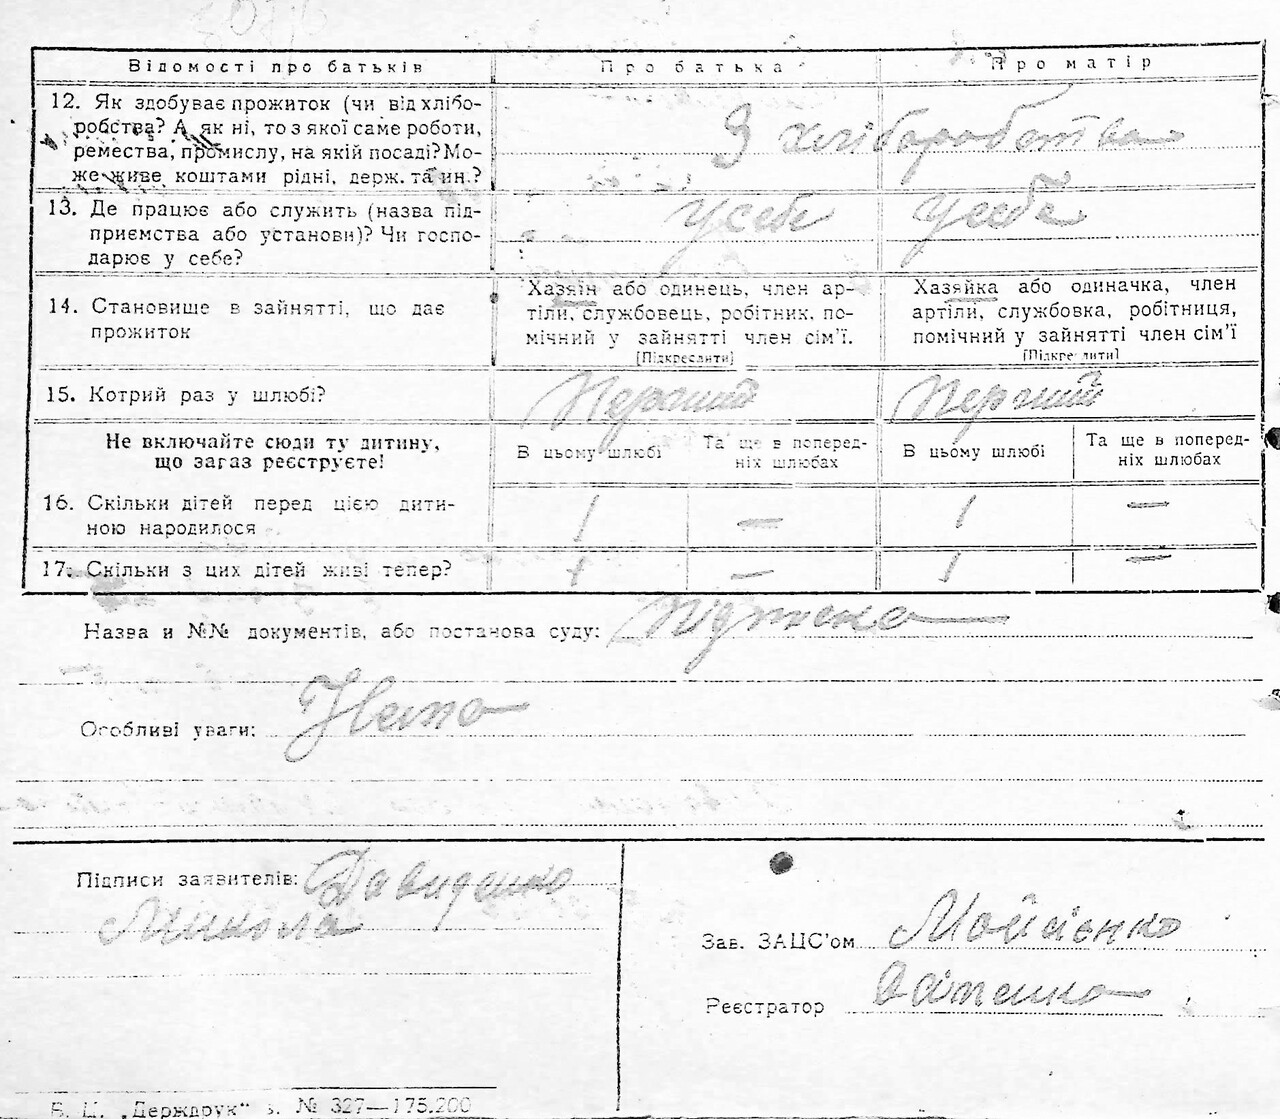 Відомості про батьків Про батька Про матір
12. Як здобуває прожиток (чи від хлібо-
робства? А як ні, то з якої саме роботи,
ремества, промислу, на якій посаді? Мо-
же живе коштами рідні, держ. та ин.?
З хліборобства
13. Де працює або служить (назва під-
приємства або установи)? Чи госпо-
дарює у себе?
у себе у себе
14. Становище в зайнятті, що дає
прожиток
Хазяїн або одинець, член ар-
тіли, службовець, робітник, по-
мічний у зайнятті член сім’ї.
[Підкреслити]
Хазяйка або одиначка, член
артіли, службовка, робітниця,
помічний у зайнятті член сім’ї
[Підкреслити]
15. Котрий раз у шлюбі? Перший Перший
Не включайте сюди ту дитину,
що загаз реєструєте!
В цьому шлюбі
Та ще в поперед-
ніх шлюбах
В цьому шлюбі
Та ще в поперед-
ніх шлюбах
16. Скільки дітей перед цією дити-
ною народилося
1 — 1 —
17. Скільки з цих дітей живі тепер? 1 — 1 —
Назва и №№ документів, або постанова суду:
Особливі уваги: Нема
Підписи заявителів: Давиденко
Микола
Зав. ЗАЦС’ом Мойсієнко
Реєстратор
„Держдрук“ з. № 327—175.200